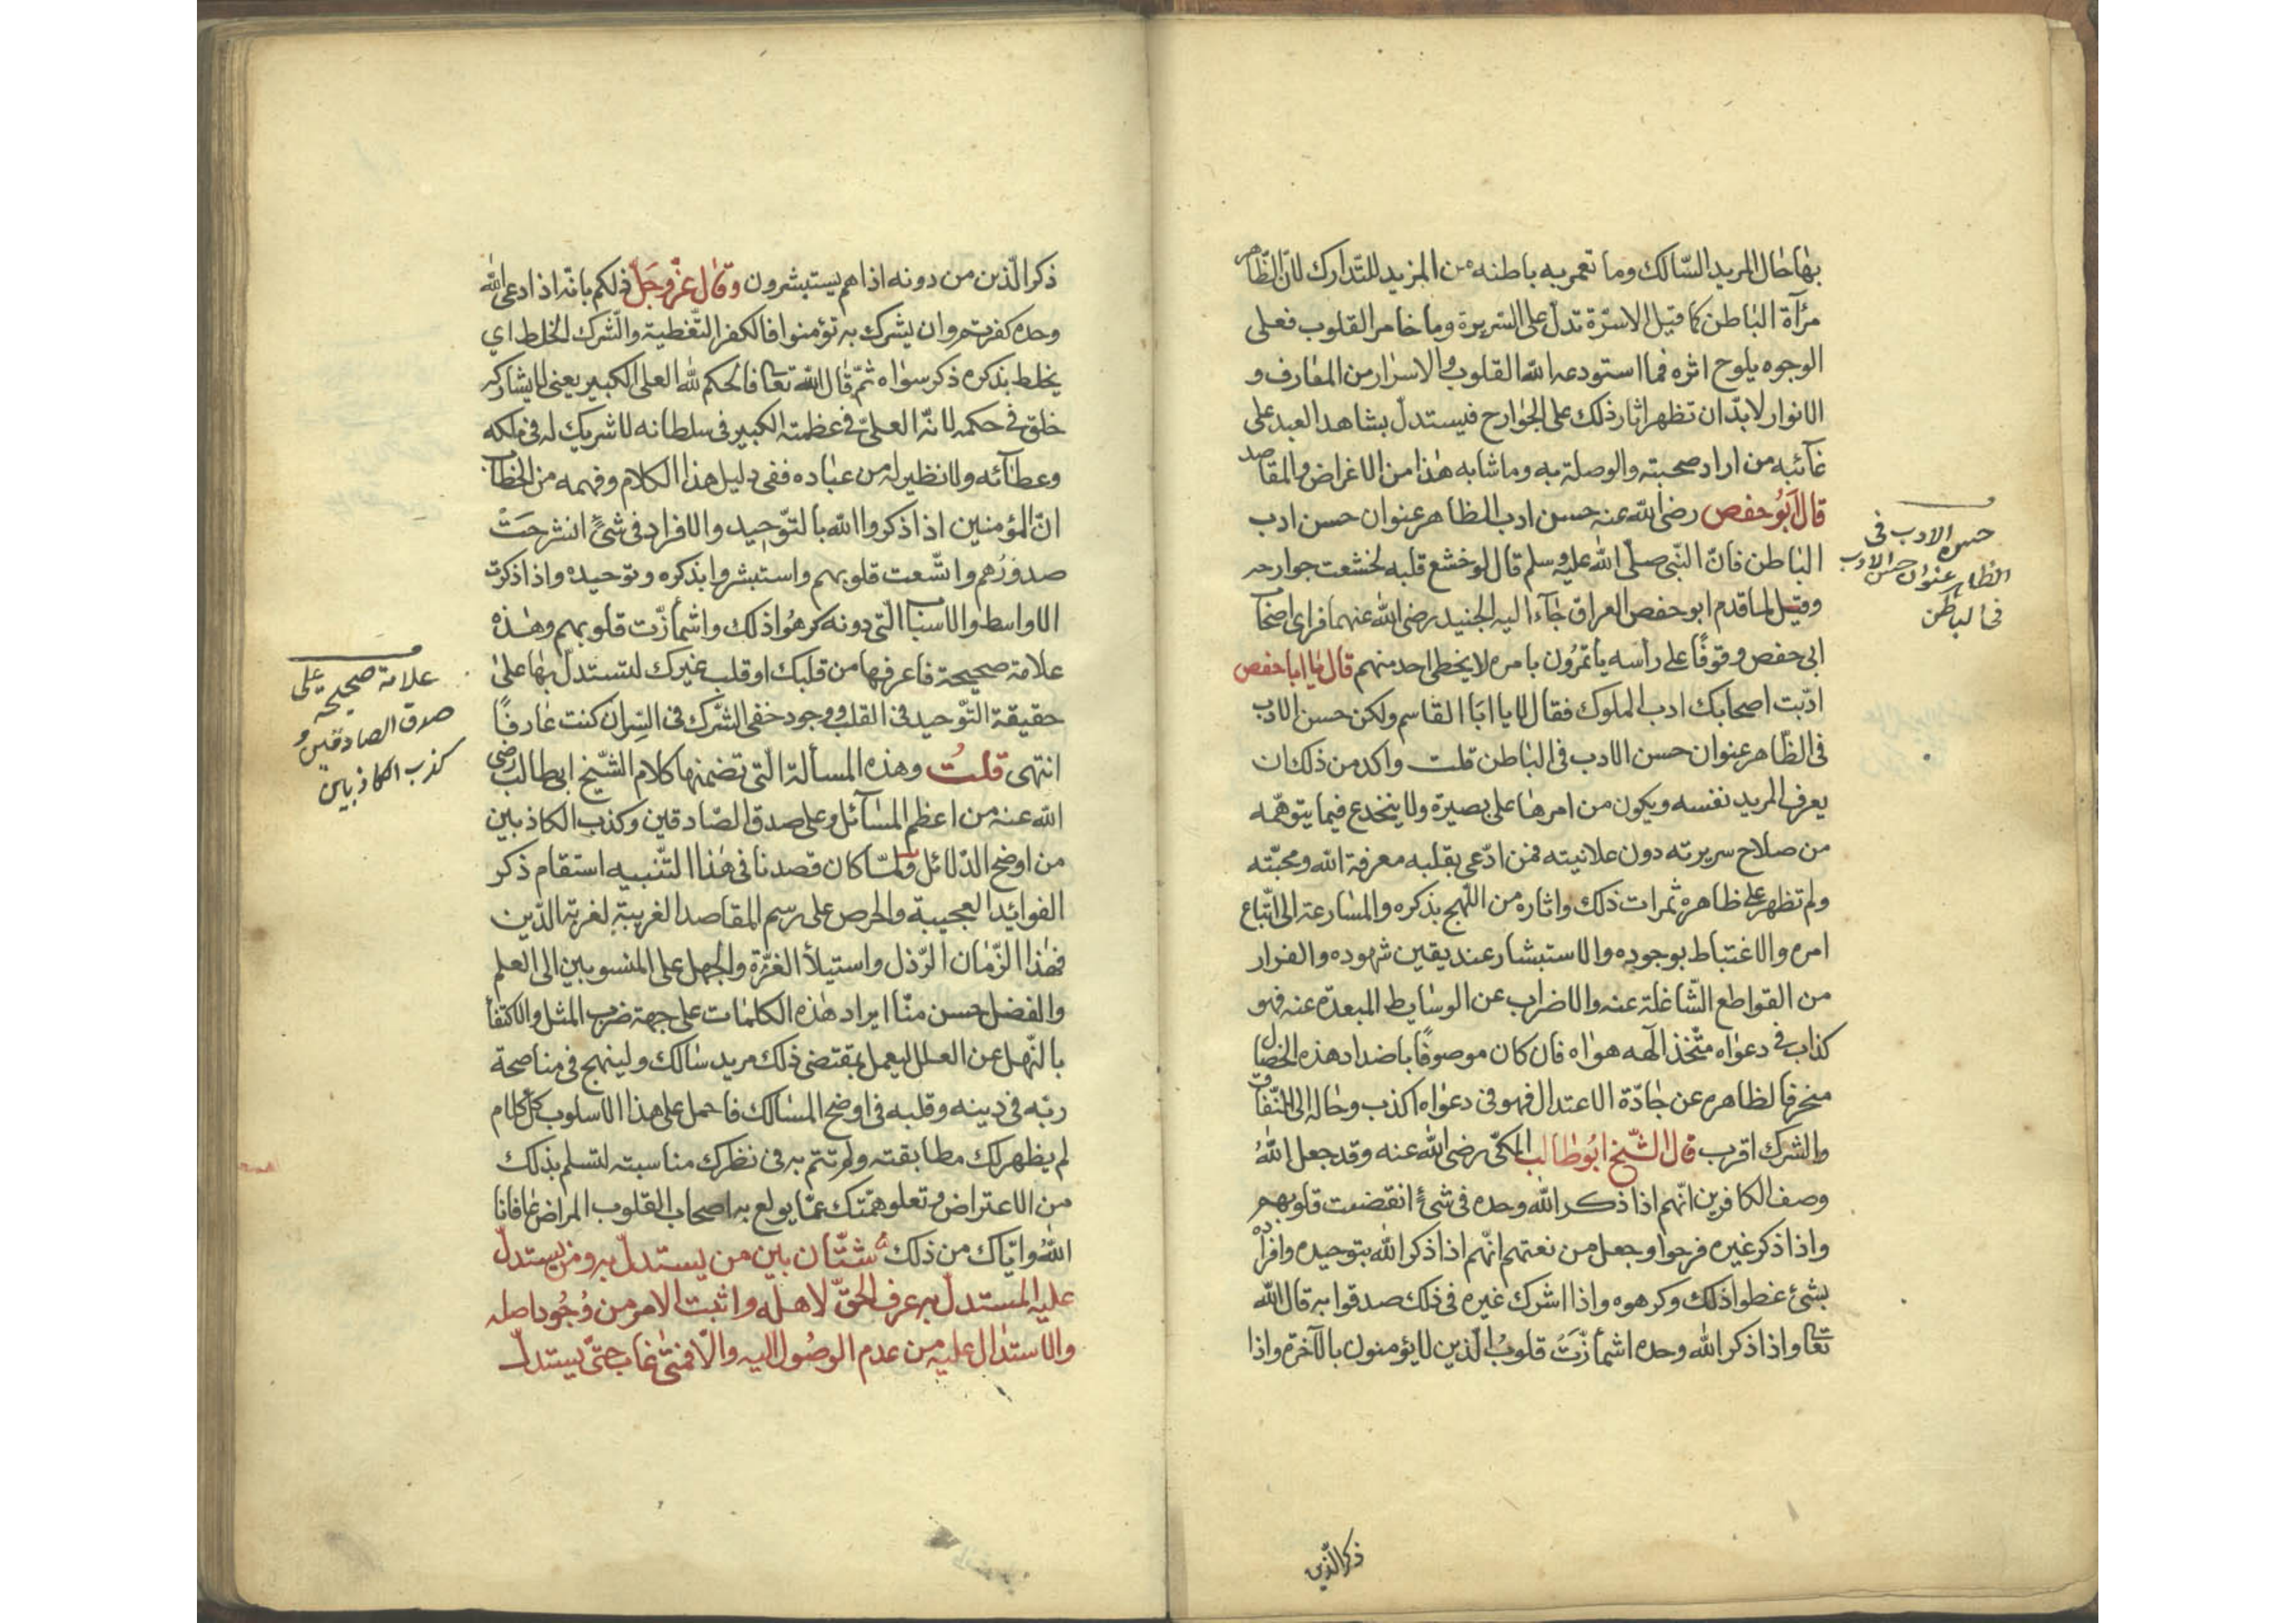 بها حال المريد السّالك وما تعمر به باطنه من المزيد للتدارك لانّ الظّاهر
مرآة الباطن كما قيل الاسرّة تدلّ على السّريرة وما خامر القلوب فعلى
الوجوه يلوح اثره فما استودعه الله القلوب والاسرار من المعارف و
الانوار لابدّ ان تظهر اثار ذلك على الجوارح فيستدلّ بشاهد العبد على
غائبه من اراد صحبته والوصلة به وما شابه هذا من الاغراض والمقاصد
قال ابو حفص رضى الله عنه حسن ادب الظاهر عنوان حسن ادب
الباطن فانّ النّبى صلّى الله عليه وسلم قال لو خشع قلبه لخشعت جوارحه
وقيل لما قدم ابو حفص العراق جاء اليه الجنيد رضى الله عنهما فراى اصحاب
ابى حفص وقوفًا على رأسه يأتمرون بامره لا يخطى احد منهم قال يا ابا حفص
ادّبت اصحابك ادب الملوك فقال لا يا ابا القاسم ولكن حسن الادب
فى الظّاهر عنوان حسن الادب فى الباطن قلت واكد من ذلك ان
يعرف المريد نفسه ويكون من امرها على بصيرة ولا ينخدع فيما يتوهّمه
من صلاح سريرته دون علانيته فمن ادّعى بقلبه معرفة الله ومحبّته
ولم تظهر على ظاهره ثمرات ذلك واثاره من اللّهج بذكره والمسارعة الى اتّباع
امره والاغتباط بوجوده والاستبشار عند يقين شهوده والفرار
من القواطع الشّاغلة عنه والاضراب عن الوسايط المبعدة عنه فهو
كذاب فى دعواه متّخذ الهه هواه فان كان موصوفًا باضداد هذه الخصال
منحرفا لظاهره عن جادّة الاعتدال فهو فى دعواه اكذب وحاله الى النّفاق
والشرك اقرب قال الشّيخ ابو طالب المكّى رضى الله عنه وقد جعل الله
وصف الكافرين انّهم اذا ذكر الله وحده فى شئ انقضت قلوبهم
واذا ذكر غيره فرحوا وجعل من نعتهم انّهم اذا ذكر الله بتوحيده وافراده
بشئ غطوا ذلك وكرهوه واذا اشرك غيره فى ذلك صدقوا به قال الله
تعا واذا ذكر الله وحده اشمأزّت قلوب الّذين لا يؤمنون بالآخرة واذا
ذكر الّذين
حسن الادب فى
الظاهر عنوان حسن الادب
فى الباطن
ذكر الّذين من دونه اذا هم يستبشرون وقال عزّ وجلّ ذلكم بانّه اذا دعى الله
وحده كفرتم وان يشرك به تؤمنوا فالكفر التّغطية والشّرك الخلط اي
يخلط بذكره ذكر سواه ثمّ قال الله تعا فالحكم لله العلى الكبير يعنى لا يشاركه
خلق فى حكمه لانّه العلىّ فى عظمته الكبير فى سلطانه لا شريك له فى ملكه
وعطائه ولا نظير له من عباده ففى دليل هذا الكلام وفهمه من الخطاب
انّ المؤمنين اذا ذكروا الله بالتوّحيد والافراد فى شئ انشرحت
صدورهم واتّسعت قلوبهم واستبشروا بذكره وتوحيده واذا ذكرت
الاواسط والاسباب الّتى دونه كرهوا ذلك واشمأزّت قلوبهم وهذه
علامة صحيحة فاعرفها من قلبك او قلب غيرك لتستدلّ بها على
حقيقة التّوحيد فى القلب ووجود خفى الشّرك فى السّر ان كنت عارفًا
انتهى قلت وهذه المسألة الّتى تضمنها كلام الشّيخ ابى طالب رضى
الله عنه من اعظم المسائل وعلى صدق الصّادقين وكذب الكاذبين
من اوضح الدّلائل ولمّا كان قصدنا فى هذا التّنبيه استقام ذكر
الفوائد العجيبة والحرص على رسم المقاصد الغريبة لغربة الدّين
فى هذا الزّمان الرّذل واستيلأ الغرّة والجهل على المنسوبين الى العلم
والفضل حسن منّا ايراد هذه الكلمات على جهة ضرب المثل والاكتفأ
بالنّهل عن العلل ليعمل بمقتضى ذلك مريد سالك ولينهج فى مناصحة
ربّه فى دينه وقلبه فى اوضح المسالك فاحمل على هذا الاسلوب كلّ كلام
لم يظهر لك مطابقته ولم تتم به فى نظرك مناسبته لتسلم بذلك
من الاعتراض وتعلو همّتك عمّا يولع به اصحاب القلوب المراض عافانا
الله وايّاك من ذلك شتّان بين من يستدلّ به ومن يستدلّ
عليه المستدلّ به عرف الحقّ لاهله واثبت الامر من وجود اصله
والاستدلال عليه من عدم الوصول اليه والّا فمتى غاب حتّى يستدلّ
علامة صحيحه على
صدق الصادقين و
كذب الكاذبين